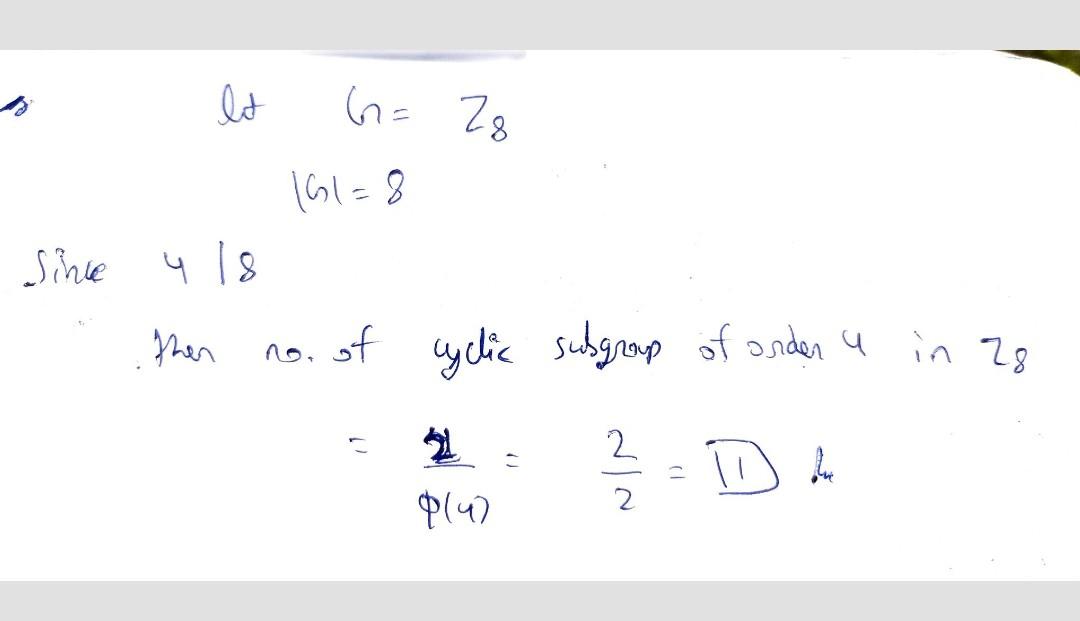 let G = Z8
|G| = 8
Since 4 | 8
then no. of cyclic subgroup of order 4 in Z8
= 2/φ(4) = 2/2 = 1